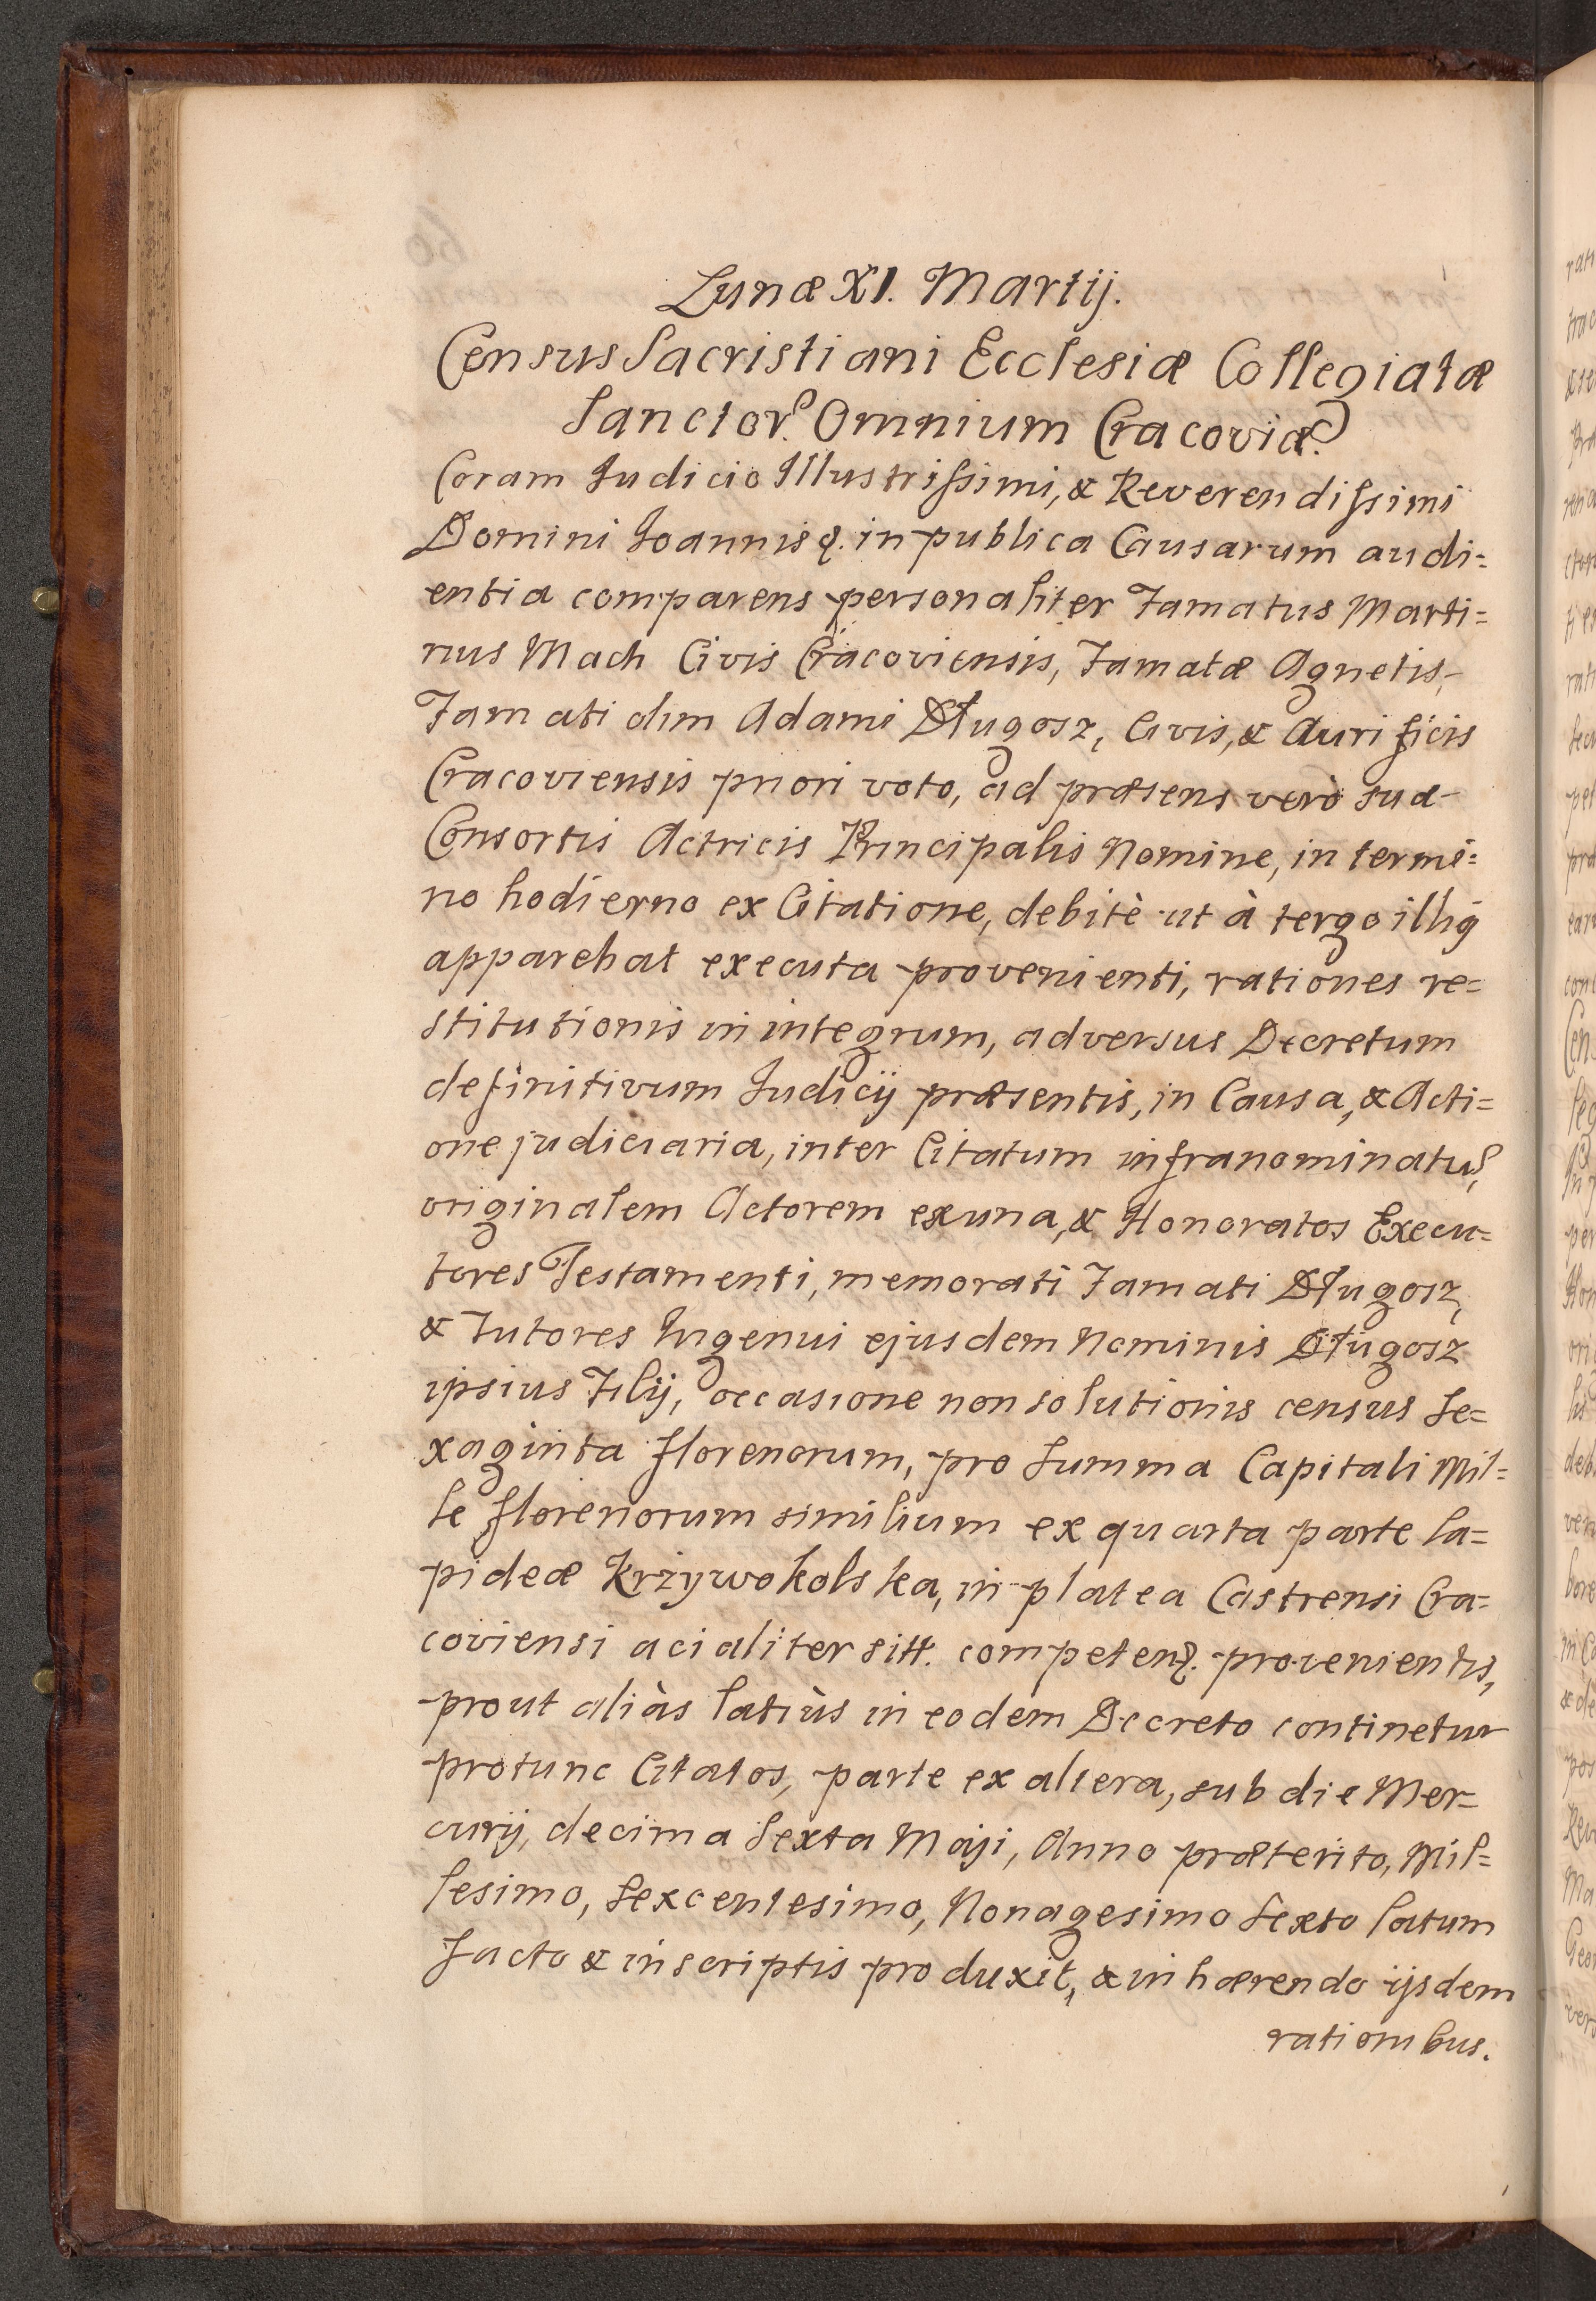 Lunæ XI. Martij.
Census Sacristiani Ecclesiæ Collegiatæ
Sanctor. Omnium Cracoviæ.
Coram Judicio Illustrissimi, & Reverendissimi
Domini Joannis &. in publica Causarum audi=
entia comparens personaliter Famatus Marti=
nus Mach Civis Cracoviensis, Famatæ Agnetis,
Famati olim Adami Długosz, Civis, & Aurificis
Cracoviensis priori voto, ad præsens verò suæ
Consortis Actricis Principalis Nomine, in termi=
no hodierno ex Citatione, debitè ut à tergo illiq
apparebat executa provenienti, rationes re=
stitutionis in integrum, adversus Decretum
definitivum Judicij præsentis, in Causa, & Acti=
one judiciaria, inter Citatum infranominatu,
originalem Actorem ex una, & Honoratos Execu=
tores Testamenti, memorati Famati Długosz,
& Tutores Ingenui ejusdem Nominis Długosz
ipsius Filij, occasione non solutionis census Se=
xaginta florenorum, pro Summa Capitali Mil=
le florenorum similium ex quarta parte la=
pideæ Krzywokolska, in platea Castrensi Cra=
coviensi acialiter sitt. competen. provenientis,
prout aliàs latiùs in eodem Decreto continetur
protunc Citatos, parte ex altera, sub die Mer=
curij, decima Sexta Maji, Anno præterito, Mil=
lesimo, Sexcentesimo, Nonagesimo Sexto latum
facto & in scriptis produxit, & inhærendo ijsdem
rationibus.